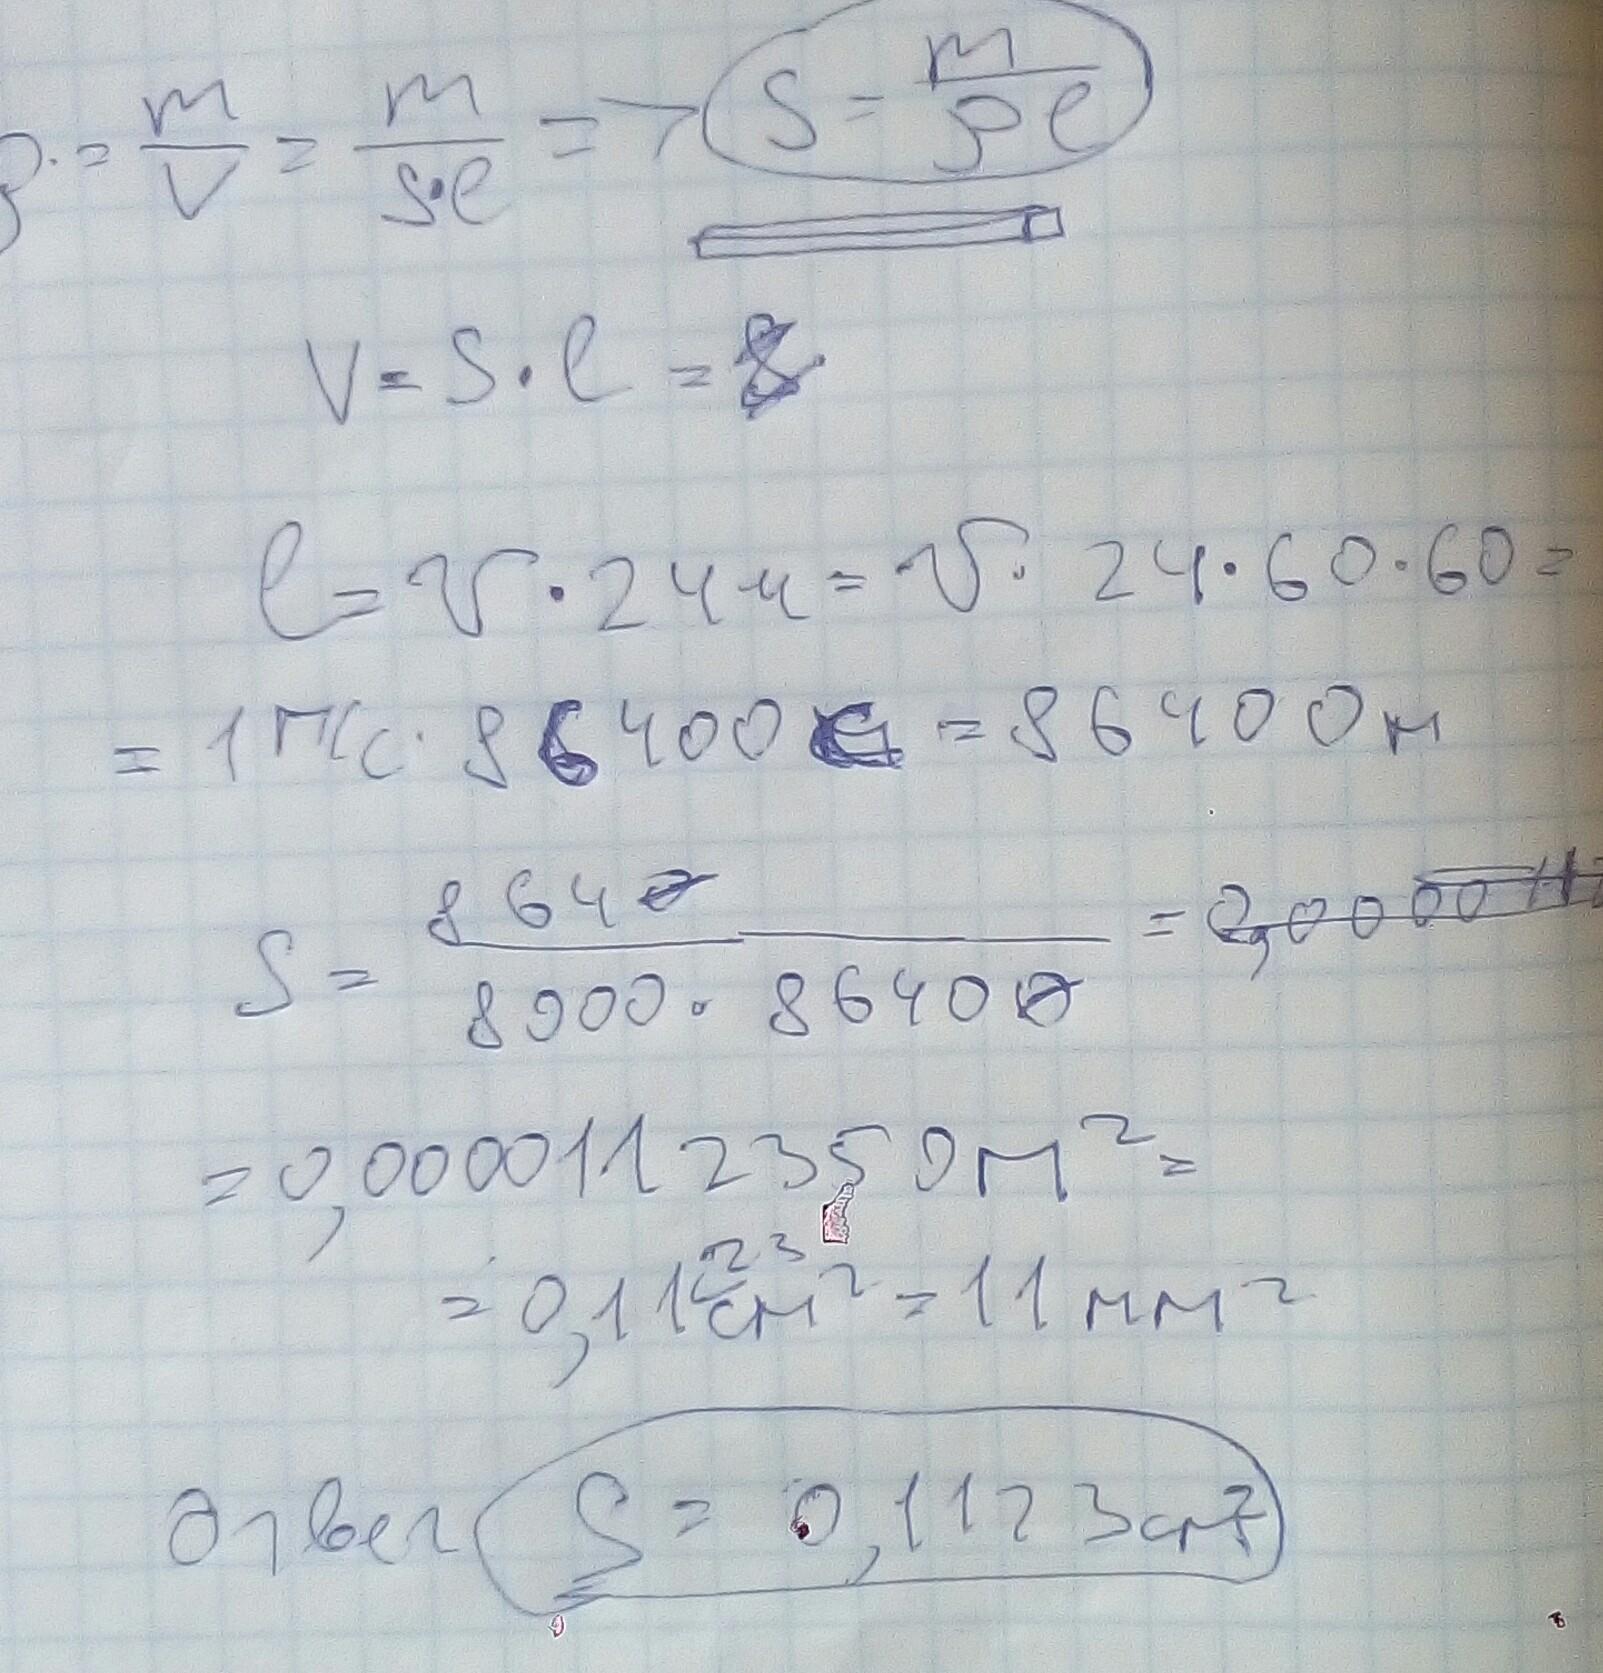 ρ = m/V = m/S·l => S = m/ρl
V = S·l =
l = v · 24ч = v · 24·60·60 =
= 1 м/с · 86400 с = 86400 м
S = 8640/8900·86400 = 0,0000
= 0,0000112350 м² =
= 0,1123 см² = 11 мм²
Ответ S = 0,1123 см²